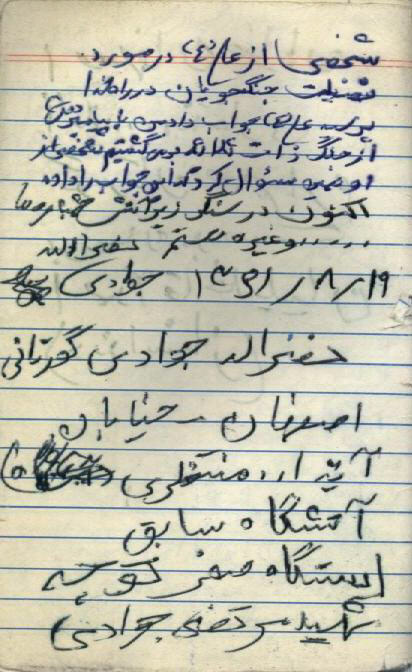 شخصی از علی (ع) در مورد
فضیلت جنگجویان در راه خدا
پرسید علی (ع) جواب دادمن با پیامبر (ص)
از جنگ ذات برمیگشتیم شخصی از
او همین سؤال کرد که این جواب را داده
اکنون در سنگر زیر آتش خمپاره ها
...... و غیره هستم فضل الله
جوادی ۱۳۶۱/۸/۱۹
فضل الله جوادی گورتانی
اصفهان خیابان
آیت ا... منتظری
آتشگاه سابق
ایستگاه صفر کوچه
شهید مرتضی جوادی